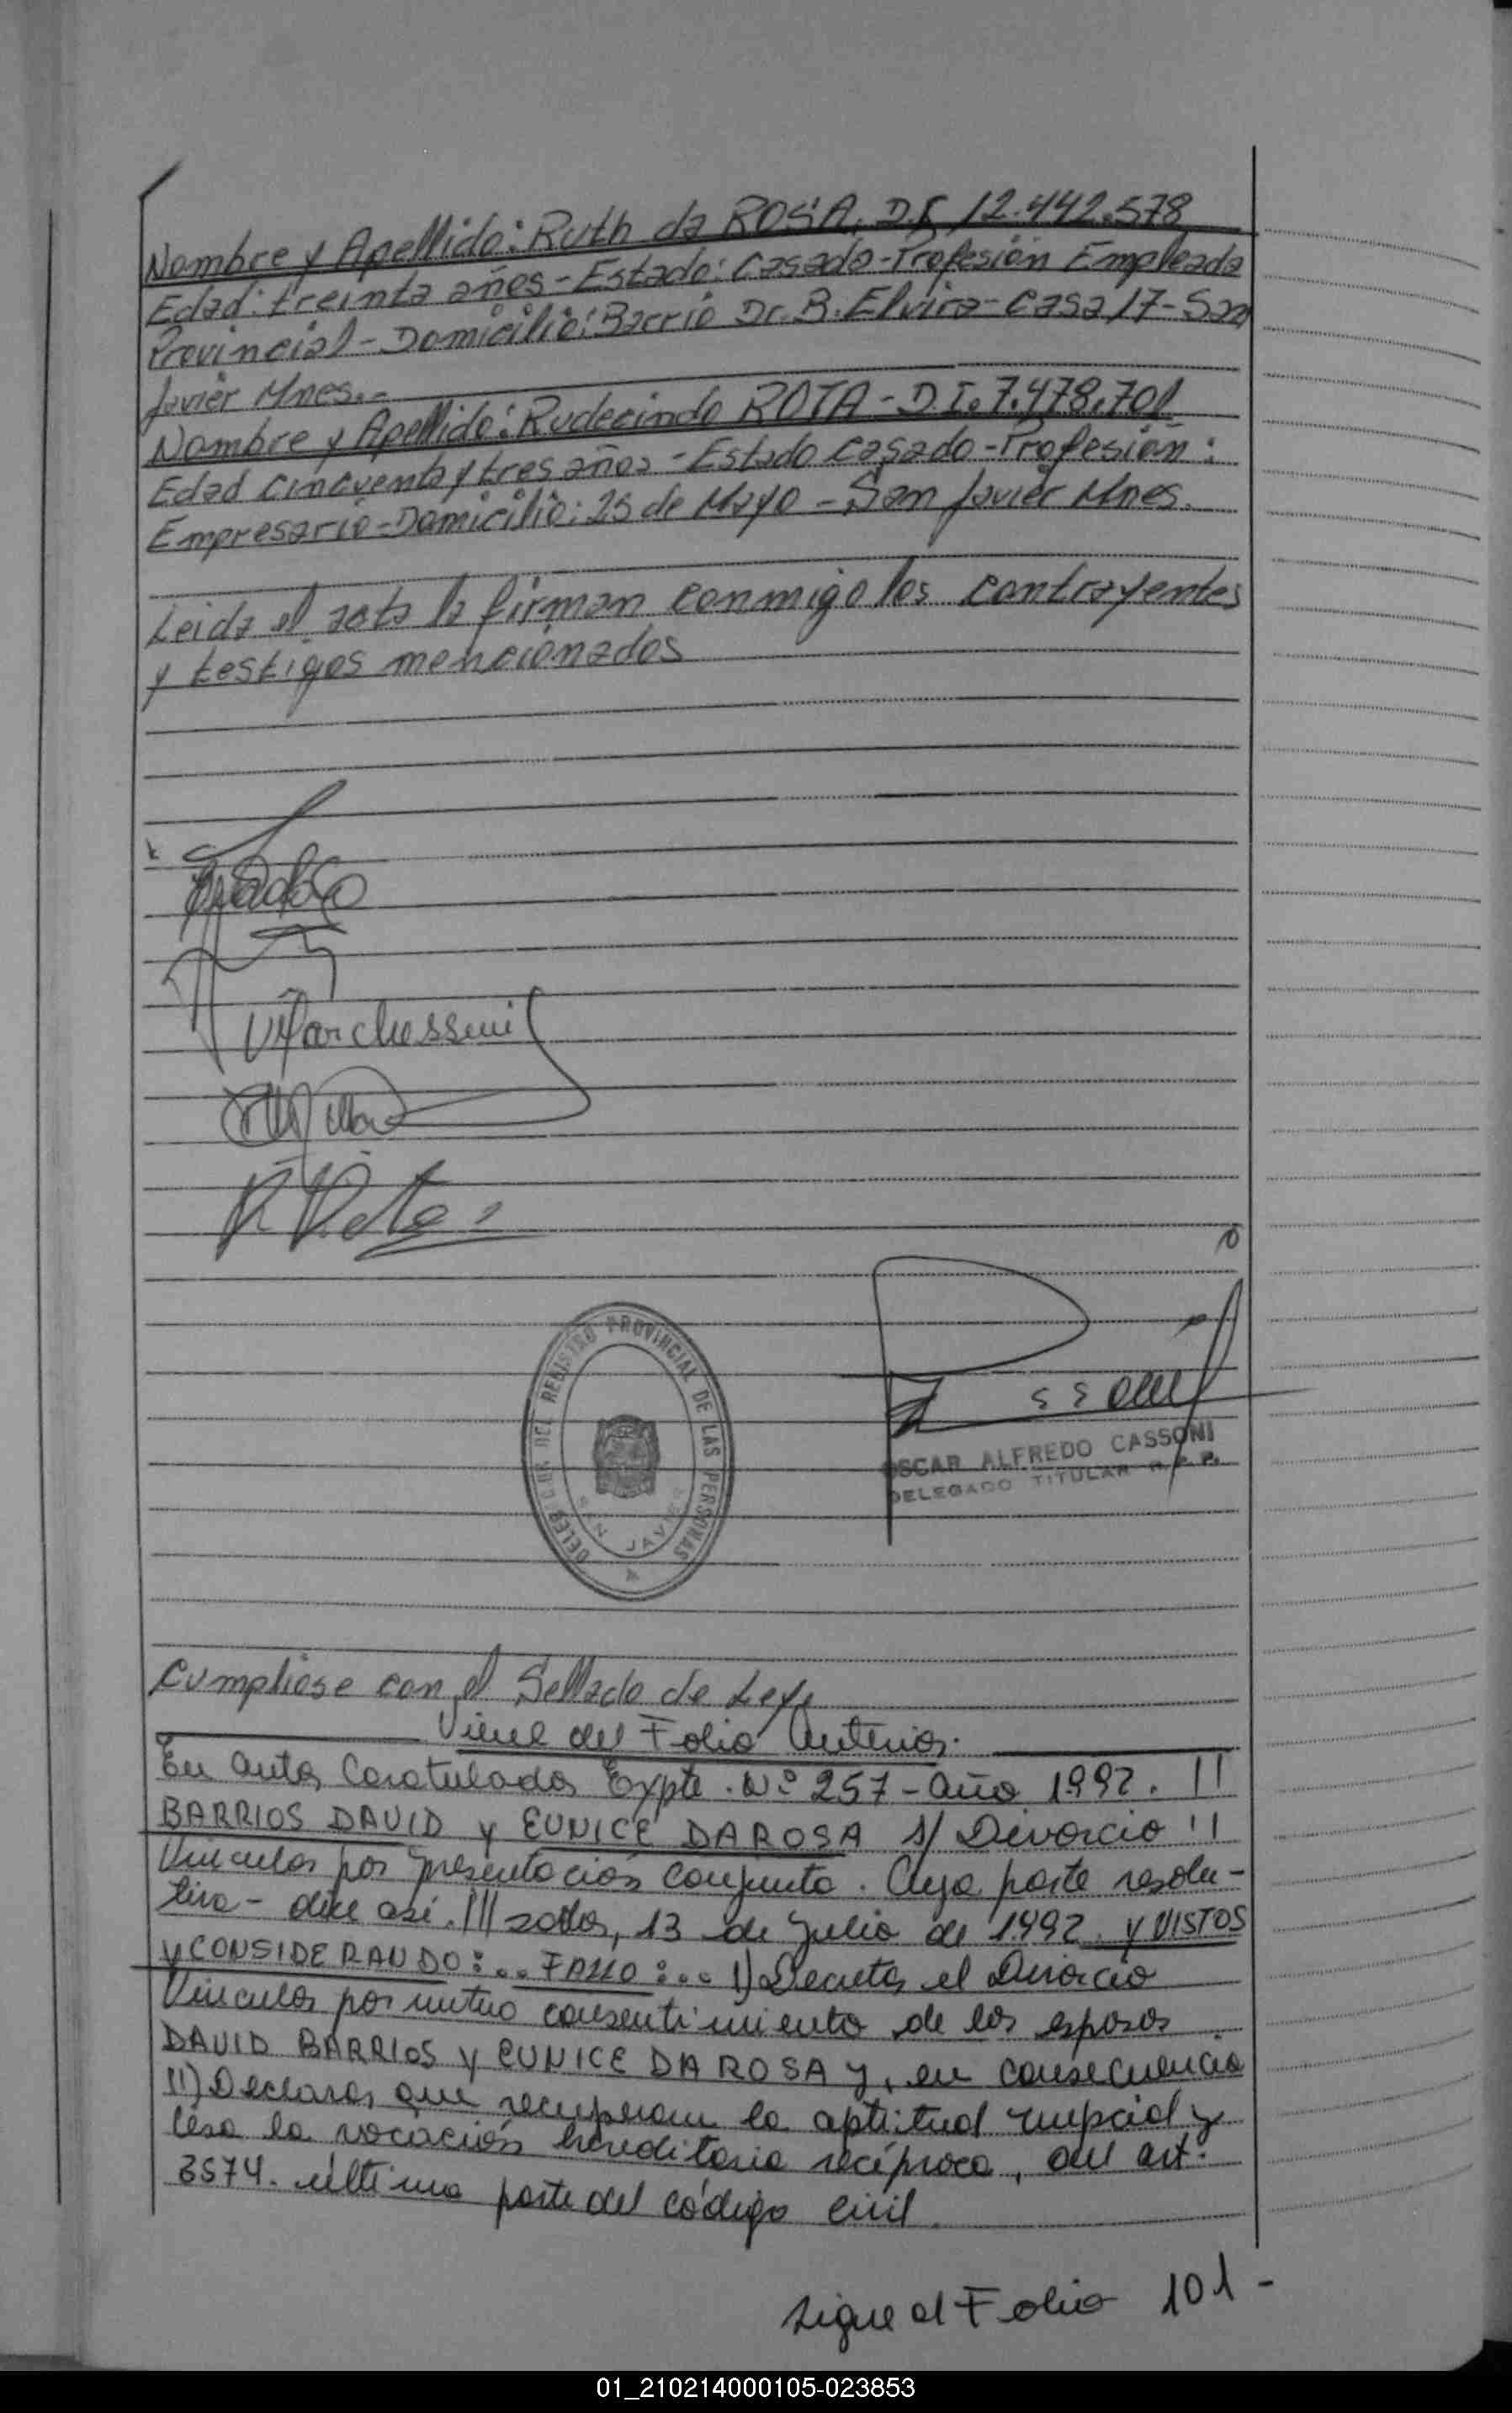 Nombre y Apellido: Ruth da ROSA, D.I. 12.442.578
Edad: treinta años - Estado: Casada - Profesión Empleada
Provincial - Domicilio: Barrio Dr. B. Elvira - Casa 17 - San
Javier Mnes.-
Nombre y Apellido: Rudecindo ROTA - D.I. 7.478.701
Edad cincuenta y tres años - Estado casado - Profesión:
Empresario - Domicilio: 25 de Mayo - San Javier Mnes.
Leida el acta la firman conmigo los contrayentes
y testigos mencionados
VMarchessini
DELEGACION DEL REGISTRO PROVINCIAL DE LAS PERSONAS
SAN JAVIER
OSCAR ALFREDO CASSONI
DELEGADO TITULAR R.P.P.
Cumpliose con el Sellado de Ley
Viene del Folio Anterior.
En autos Caratulados Expte. Nº 257 - año 1992. !!
BARRIOS DAVID y EUNICE DAROSA s/ Divorcio !!
Vincular por presentación conjunta. Cuya parte resolu-
tiva - dice así. /// 13 de Julio de 1992. Y VISTOS
Y CONSIDERANDO: .. FALLO: ... I) Decretar el Divorcio
Vincular por mutuo consentimiento de los esposos
DAVID BARRIOS Y EUNICE DA ROSA y, en consecuencia
II) Declarar que recuperan la aptitud nupcial y
cesa la vocación hereditaria recíproca, del art.
3574. última parte del código civil.
sigue al Folio 101 -
01_210214000105-023853